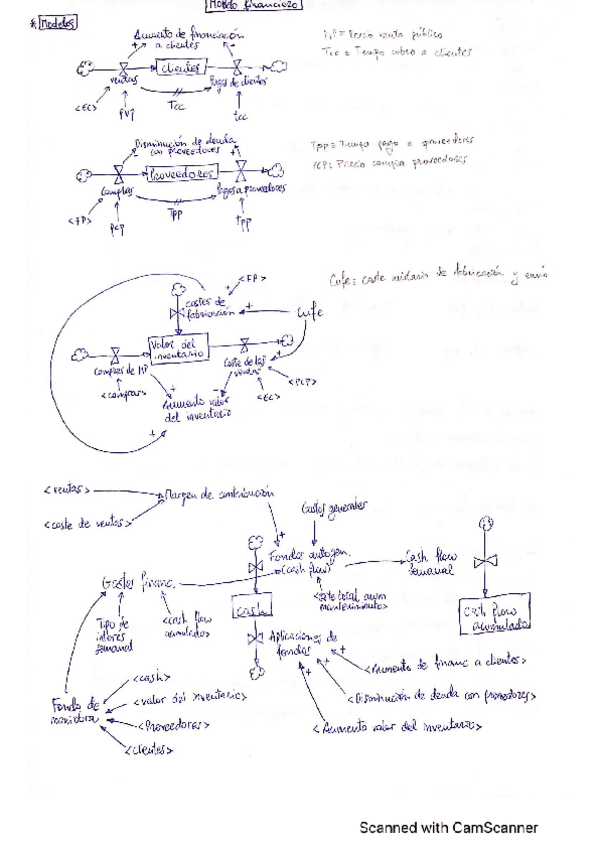 Modelo financiero
* Modelos
Aumento de financiación
a clientes
PVP = Precio venta público
Tcc = Tiempo cobro a clientes
Clientes
ventas
Pagos de clientes
<EC>
PVP
Tcc
tcc
Disminución de deuda
con proveedores
Tpp = Tiempo pago a proveedores
PCP = Precio compra proveedores
Proveedores
Compras
Pagos a proveedores
<FP>
PCP
Tpp
tpp
Cufe = coste unitario de fabricación y envío
<FP>
costes de
fabricación
Cufe
Valor del
inventario
Compras de MP
Coste de las
ventas
<compras>
<PCP>
<EC>
Aumento valor
del inventario
<ventas>
Margen de contribución
<coste de ventas>
Gastos generales
Fondos autogen.
(cash flow)
Cash flow
semanal
Gastos financ.
cash
<coste total
mantenimiento>
Cash flow
acumulado
Tipo de
interes
semanal
<cash flow
acumulado>
Aplicaciones de
fondos
<Aumento de financ a clientes>
Fondo de
maniobra
<cash>
<valor del inventario>
<Proveedores>
<clientes>
<Disminución de deuda con proveedores>
<Aumento valor del inventario>
Scanned with CamScanner